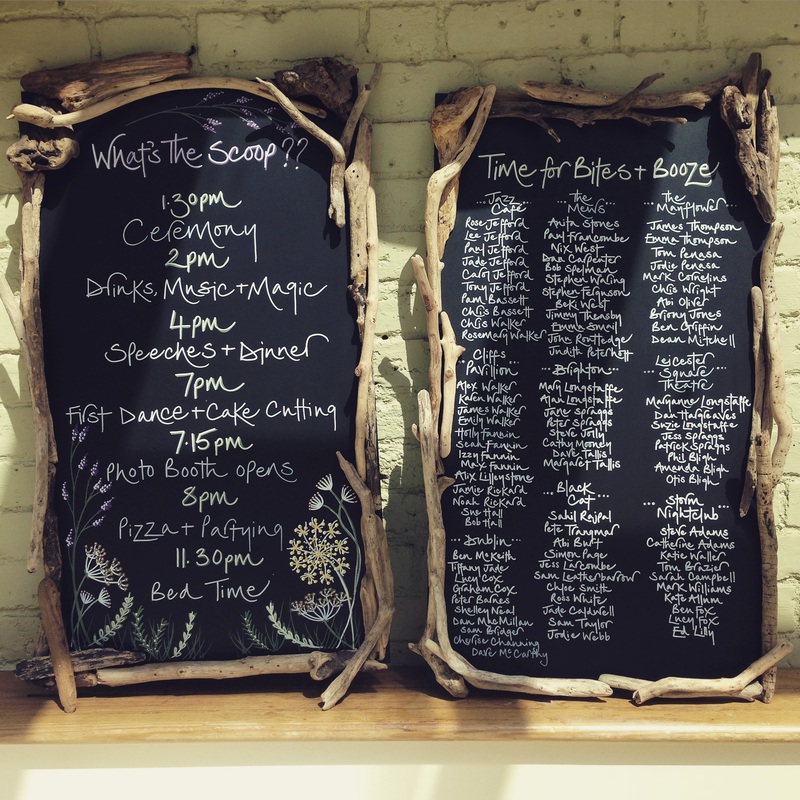 What's The Scoop??
1:30pm
Ceremony
2pm
Drinks, Music + Magic
4pm
Speeches + Dinner
7pm
First Dance + Cake Cutting
7.15pm
Photo Booth opens
8pm
Pizza + Partying
11.30pm
Bed Time
Time for Bites + Booze
Jazz
Café
Rose Jefford
Lee Jefford
Paul Jefford
Jade Jefford
Carly Jefford
Tony Jefford
Pam Bassett
Chris Bassett
Chris Walker
Rosemary Walker
Cliffs
Pavilion
Alex Walker
Karen Walker
James Walker
Emily Walker
Holly Fannin
Sean Fannin
Izzy Fannin
Max Fannin
Alix Lilleystone
Jamie Rickard
Noah Rickard
Sue Hall
Bob Hall
Dublin
Ben McKeith
Tiffany Jade
Lucy Cox
Graham Cox
Peter Barnes
Shelley Neal
Dan MacMillan
Sam Bridger
Cherise Channing
Dave McCarthy
The
Mews
Anita Stones
Paul Francombe
Nix West
Dan Carpenter
Bob Spelman
Stephen Waring
Stephen Ferguson
Beki West
Jimmy Theasby
Emma Smail
John Routledge
Judith Peterhall
Brighton
Mary Longstaffe
Alan Longstaffe
Jane Spraggs
Peter Spraggs
Steve Jolly
Cathy Mooney
Dave Tallis
Margaret Tallis
Black
Cat
Sahil Rajpal
Pete Trangmar
Abi Burt
Simon Page
Jess Larcombe
Sam Leatherbarrow
Chloe Smith
Ross White
Jade Caldwell
Sam Taylor
Jodie Webb
The
Mayflower
James Thompson
Emma Thompson
Tom Penasa
Jodie Penasa
Mark Cornelius
Chris Wright
Abi Oliver
Briony Jones
Ben Griffin
Dean Mitchell
Leicester
Square
Theatre
Maryanne Longstaffe
Dan Hargreaves
Suzie Longstaffe
Jess Spraggs
Patrick Spraggs
Phil Bligh
Amanda Bligh
Otis Bligh
Storm
Nightclub
Steve Adams
Catherine Adams
Katie Waller
Tom Brazier
Sarah Campbell
Mark Williams
Kate Allum
Ben Fox
Lucy Fox
Ed Lilly